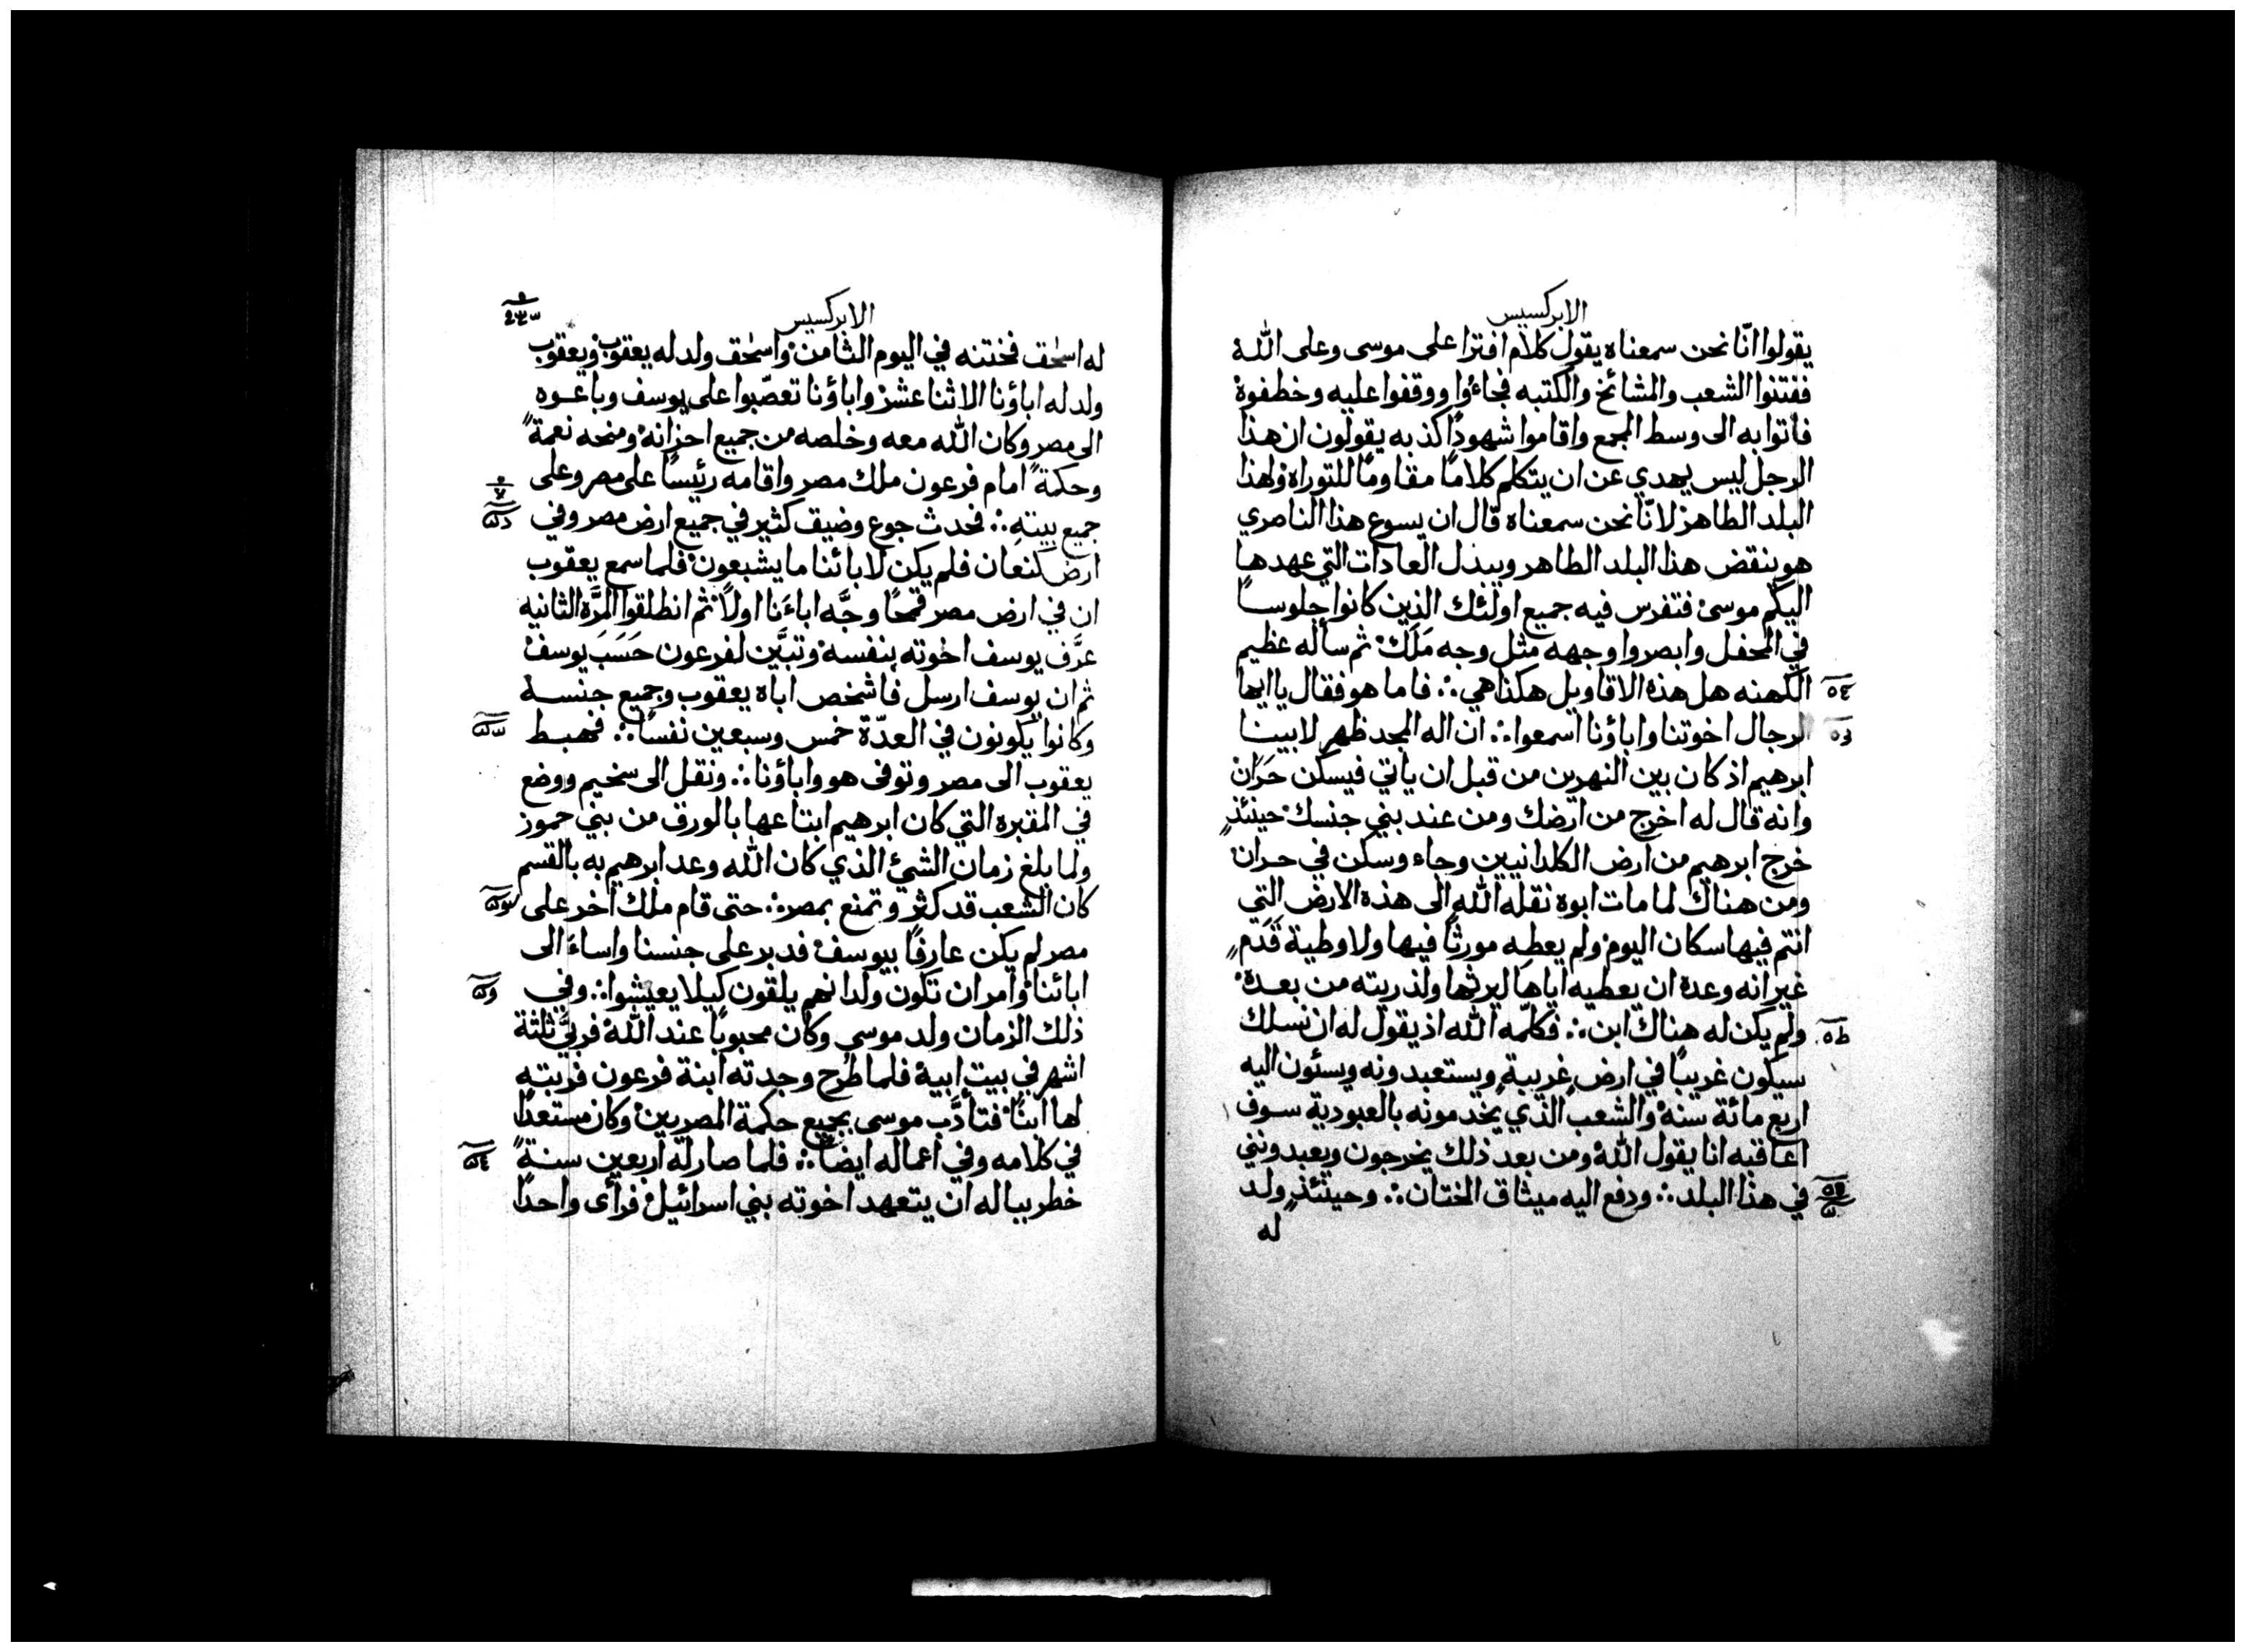 الابركسيس
يقولوا انّا نحن سمعناه يقول كلام افترا على موسى وعلى الله
ففتنوا الشعب والمشائخ والكتبه فجاءوا ووقفوا عليه وخطفوه
فاتوا به الى وسط المجمع واقاموا شهودًا كذبه يقولون ان هذا
الرجل ليس يهدي عن ان يتكلم كلامًا مقاومًا للتوراه ولهذا
البلد الطاهر لانّا نحن سمعناه قال ان يسوع هذا الناصري
هو ينقض هذا البلد الطاهر ويبدل العادات التي عهدها
اليكم موسى فتفرس فيه جميع اولئك الذين كانوا جلوسًا
في المحفل وابصروا وجهه مثل وجه مَلَك ثم سأله عظيم
الكهنه هل هذه الاقاويل هكذا هي ∴ فاما هو فقال يا ايها
الرجال اخوتنا واباؤنا اسمعوا ∴ ان اله المجد ظهر لابينا
ابرهيم اذ كان بين النهرين من قبل ان ياتي فيسكن حَرّان
وانه قال له اخرج من ارضك ومن عند بني جنسك حينئذٍ
خرج ابرهيم من ارض الكلدانيين وجاء وسكن في حران
ومن هناك لما مات ابوه نقله الله الى هذه الارض التي
انتم فيها سكان اليوم ولم يعطه مورثًا فيها ولا وطية قَدَمٍ
غير انه وعده ان يعطيه اياها ليرثها ولذريته من بعده
ولم يكن له هناك ابن ∴ فكلّمه الله اذ يقول له ان نسلك
سيكون غريبًا في ارض غريبة ويستعبدونه ويسئون اليه
اربع مائة سنه والشعب الذي يخدمونه بالعبودية سوف
اعاقبه انا يقول الله ومن بعد ذلك يخرجون ويعبدونني
في هذا البلد ∴ ودفع اليه ميثاق الختان ∴ وحينئذٍ ولد
له
الابركسيس
له اسحق فختنه في اليوم الثامن واسحق ولد له يعقوب ويعقوب
ولد له اباؤنا الاثنا عشر واباؤنا تعصّبوا على يوسف وباعوه
الى مصر وكان الله معه وخلصه من جميع احزانه ومنحه نعمةً
وحكمةً امام فرعون ملك مصر واقامه رئيسًا على مصر وعلى
جميع بيته ∴ فحدث جوع وضيق كثير في جميع ارض مصر وفي
ارض كنعان فلم يكن لابائنا ما يشبعون فلما سمع يعقوب
ان في ارض مصر قمحًا وجَّه اباءَنا اولًا ثم انطلقوا المرَّة الثانيه
عرَّف يوسف اخوته بنفسه وتبيَّن لفرعون حَسَبَ يوسف
ثم ان يوسف ارسل فاشخص اباه يعقوب وجميع جنسه
وكانوا يكونون في العدّة خمس وسبعين نفسًا ∴ فهبط
يعقوب الى مصر وتوفى هو واباؤنا ∴ ونقل الى سخيم ووضع
في المقبره التي كان ابرهيم ابتاعها بالورق من بني حمور
ولما بلغ زمان الشئ الذي كان الله وعد ابرهيم به بالقسم
كان الشعب قد كثر وتمنع بمصر ∴ حتى قام ملك اخر على
مصر لم يكن عارفًا بيوسف فدبر على جنسنا واساءَ الى
ابائنا وامر ان تكون ولدانهم يلقون كيلا يعيشوا ∴ وفي
ذلك الزمان ولد موسى وكان محبوبًا عند الله فربيَّ ثلثة
اشهر في بيت ابيه فلما طرح وجدته ابنة فرعون فربته
لها ابنًا فتأدَّب موسى بجميع حكمة المصريين وكان مستعدًا
في كلامه وفي اعماله ايضًا ∴ فلما صار له اربعين سنةً
خطر بباله ان يتعهد اخوته بني اسرائيل فرأى واحدًا